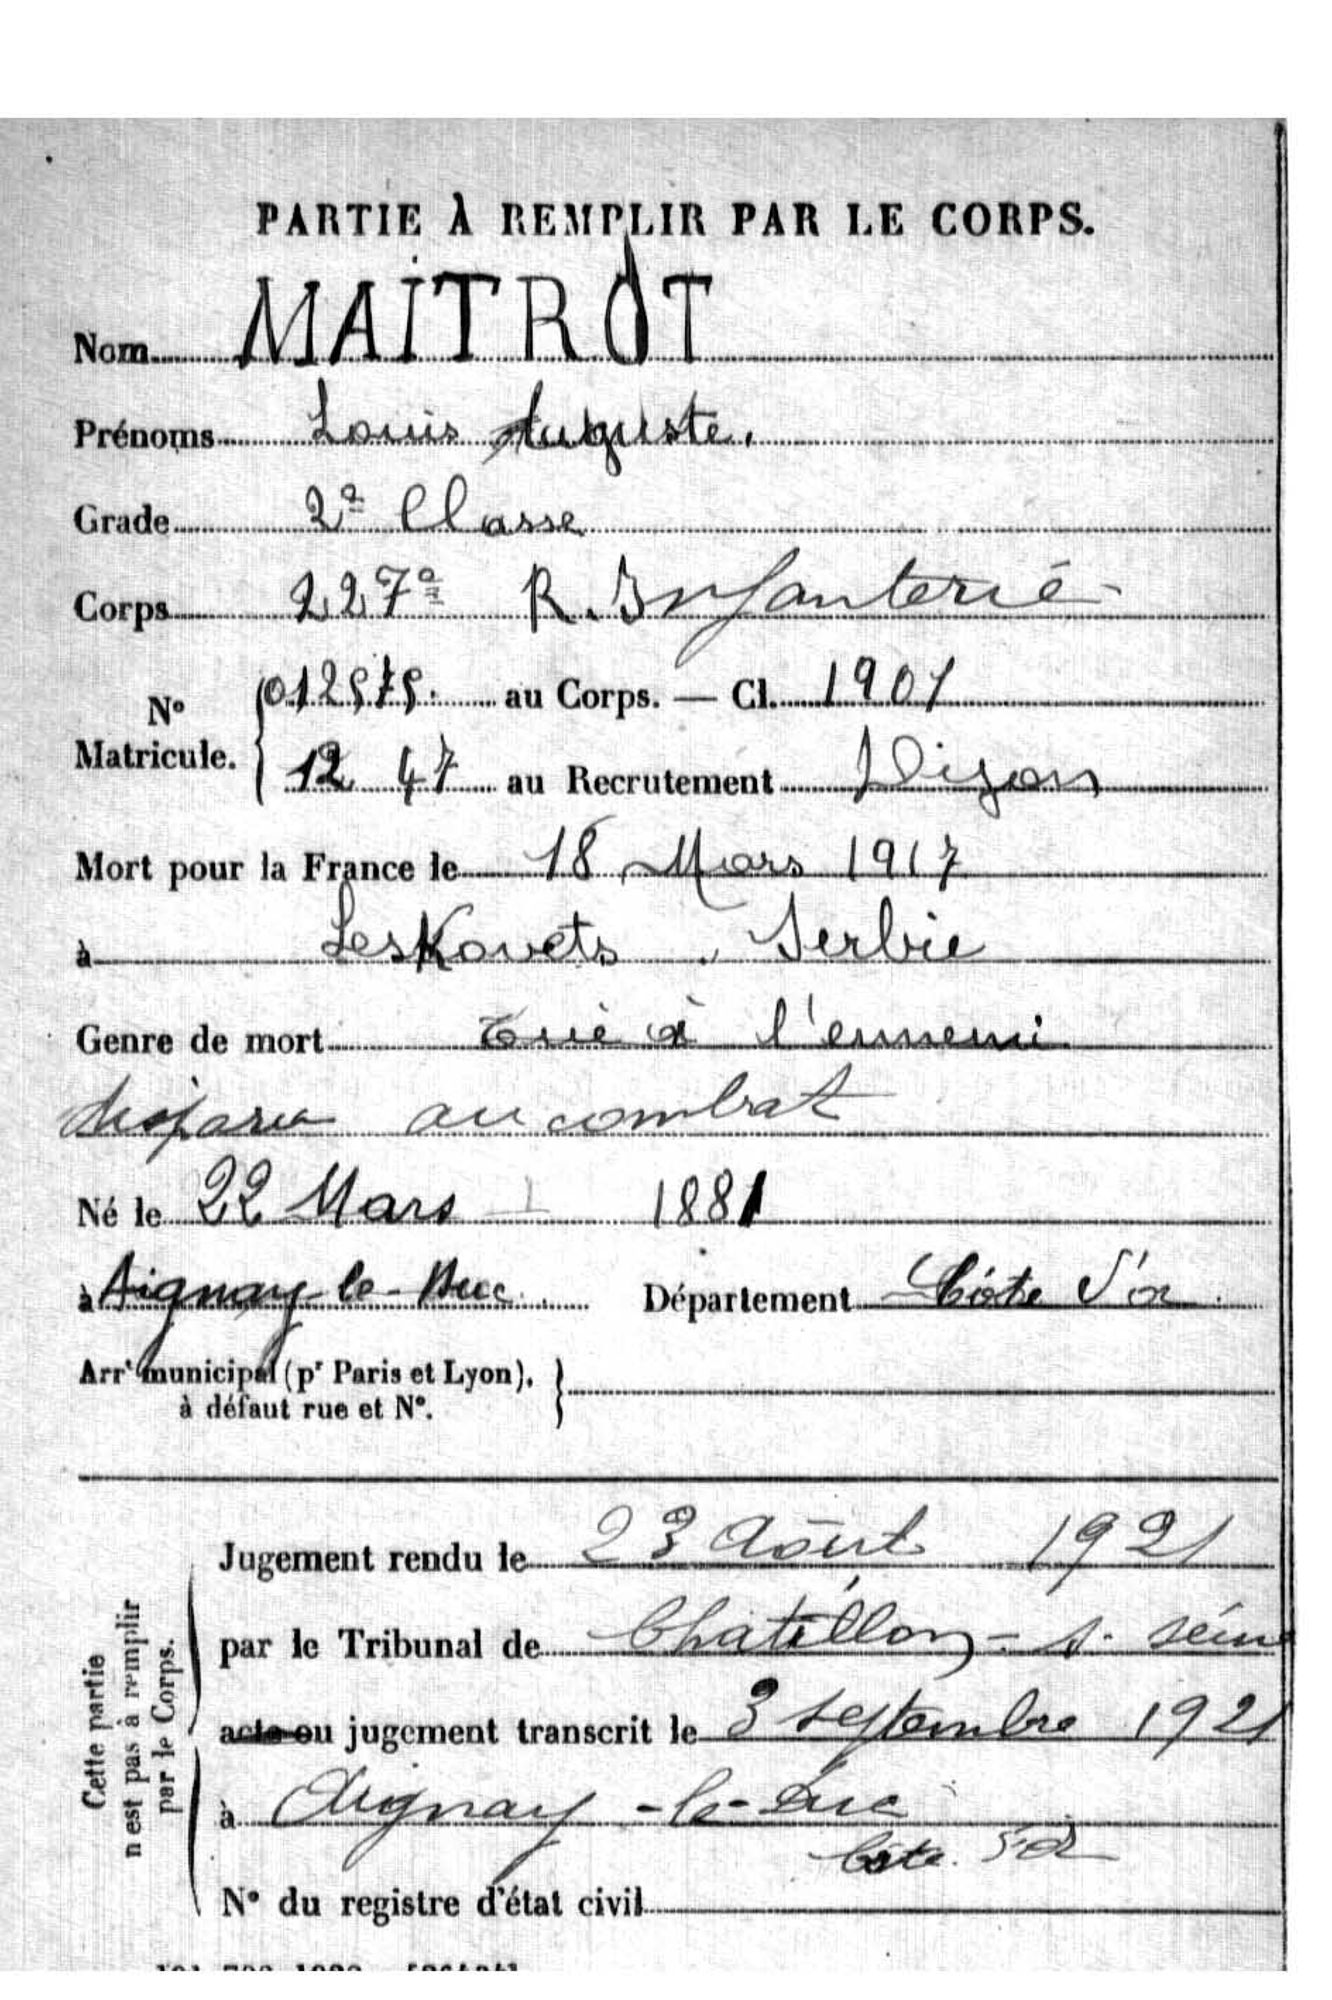 PARTIE À REMPLIR PAR LE CORPS.
Nom MAITROT
Prénoms Louis Auguste.
Grade 2e Classe
Corps 227e R. Infanterie
N° Matricule. 012575. au Corps. — Cl. 1901
12 47 au Recrutement Dijon
Mort pour la France le 18 Mars 1917
à Leskovets . Serbie
Genre de mort tué à l'ennemi
disparu au combat
Né le 22 Mars 1881
à Aignay-le-Duc Département Côte d'or
Arrt municipal (pr Paris et Lyon),
à défaut rue et N°.
Jugement rendu le 23 Août 1921
par le Tribunal de Chatillon-s-seine
acte ou jugement transcrit le 3 septembre 1921
à Aignay-le-Duc
Côte d'or
N° du registre d'état civil
Cette partie
n'est pas à remplir
par le Corps.